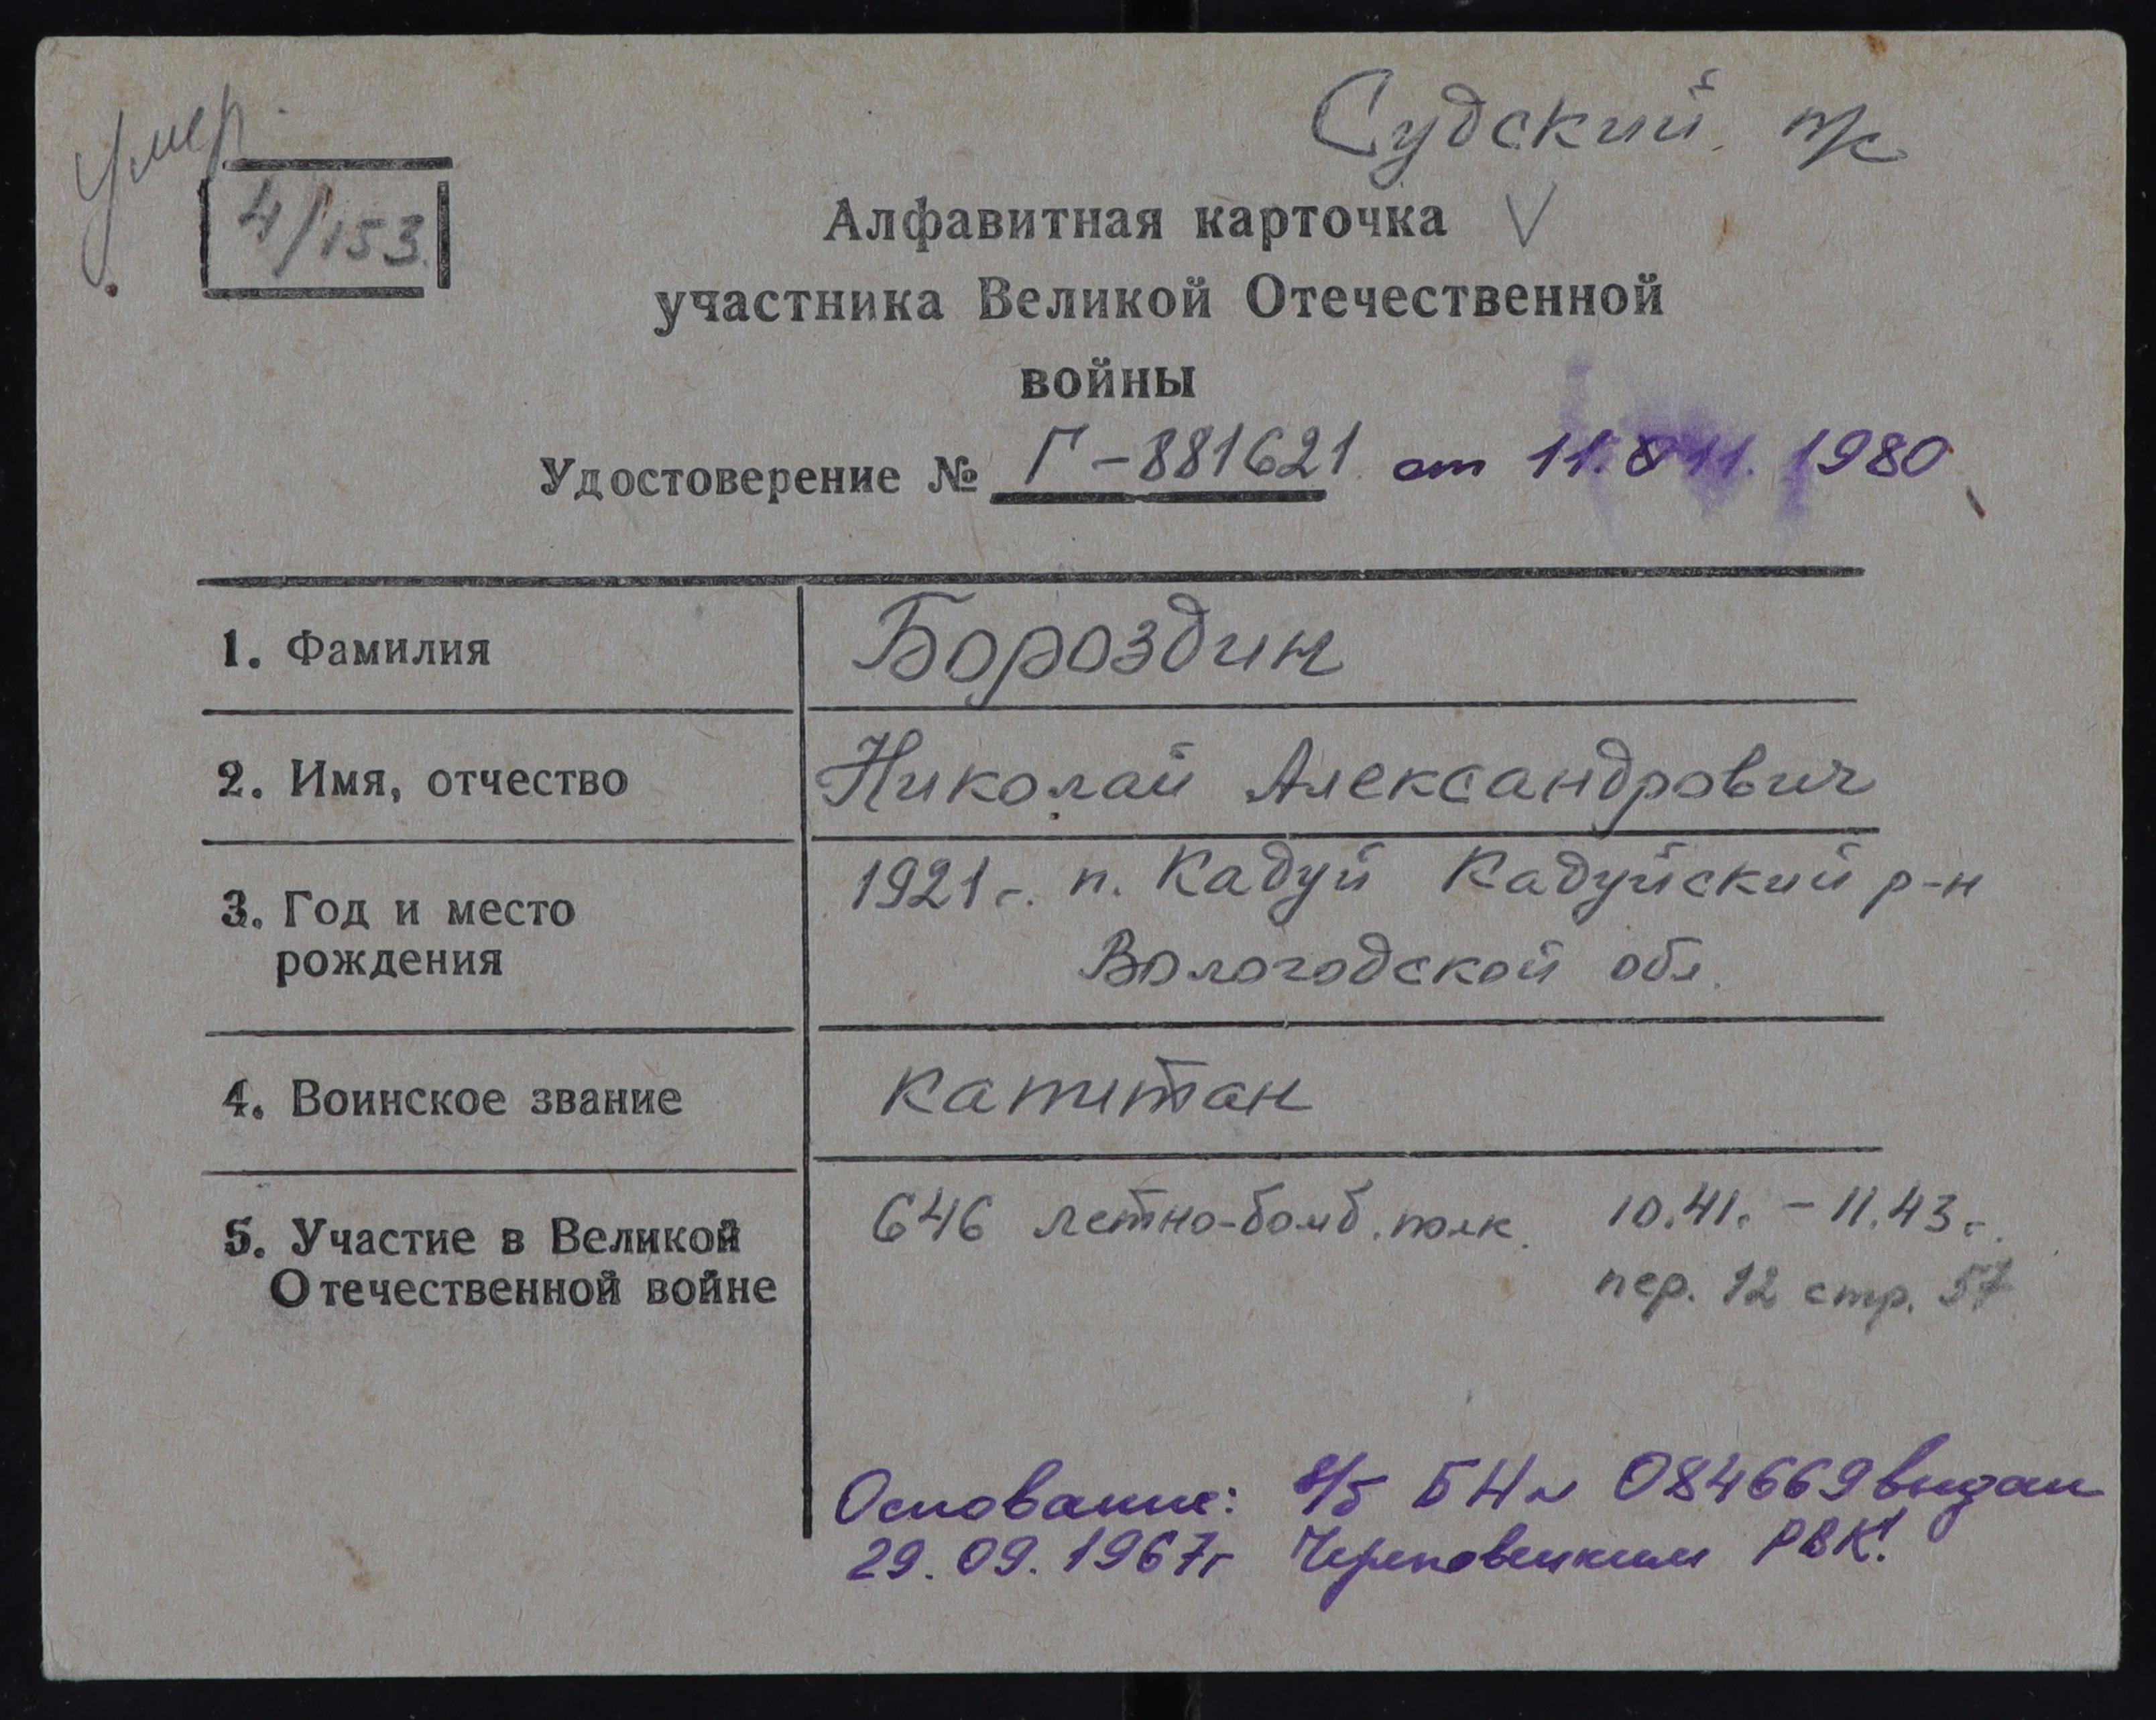 Умер.
Судский п/к
4/153.
Алфавитная карточка V
участника Великой Отечественной
войны
Удостоверение № Г-881621 от 11. 11. 1980
1. Фамилия Бороздин
2. Имя, отчество Николай Александрович
3. Год и место рождения 1921г. п. Кадуй Кадуйский р-н
Вологодской обл.
4. Воинское звание капитан
5. Участие в Великой Отечественной войне 646 летно-бомб. полк. 10.41. - 11.43г.
пер. 12 стр. 57
Основание: в/б БН № 084669 выдан
29.09.1967г Череповецким РВК!